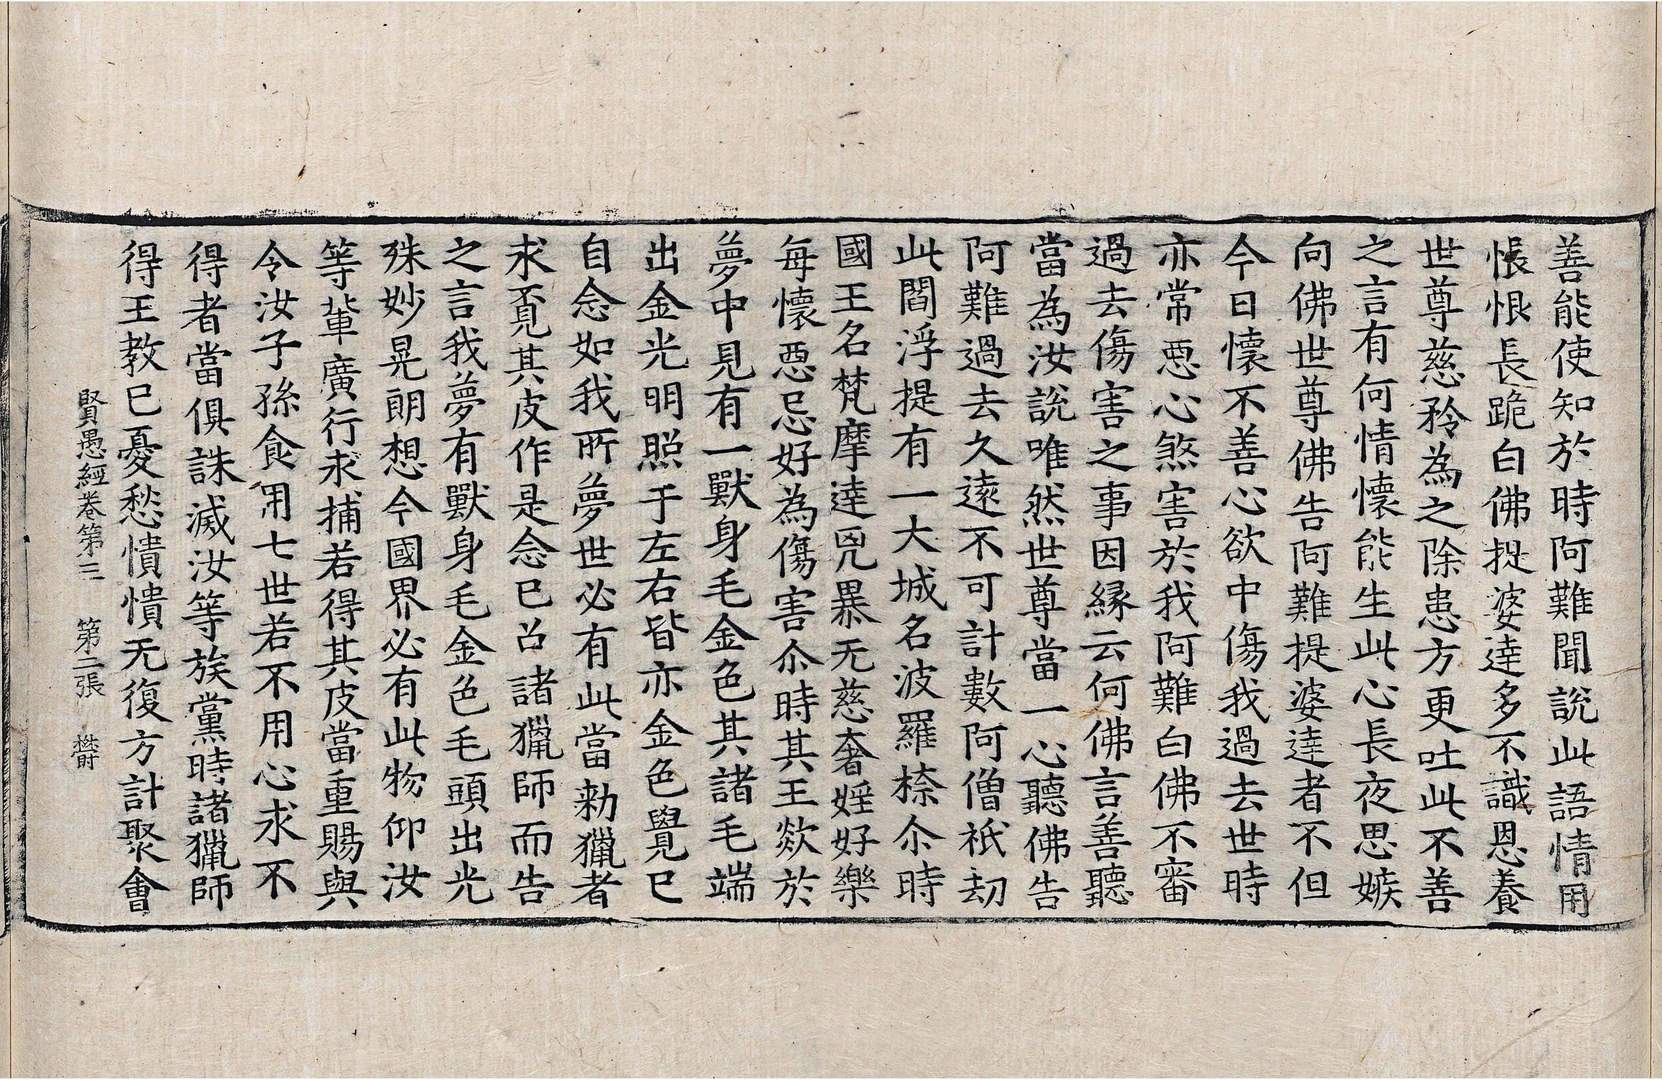 善能使知於時阿難聞說此語情用
悵恨長跪白佛提婆達多不識恩養
世尊慈矜為之除患方更吐此不善
之言有何情懷能生此心長夜思嫉
向佛世尊佛告阿難提婆達者不但
今日懷不善心欲中傷我過去世時
亦常惡心煞害於我阿難白佛不審
過去傷害之事因緣云何佛言善聽
當為汝說唯然世尊當一心聽佛告
阿難過去久遠不可計數阿僧祇劫
此閻浮提有一大城名波羅㮈尒時
國王名梵摩達兇暴无慈奢婬好樂
每懷惡忌好為傷害尒時其王欻於
夢中見有一獸身毛金色其諸毛端
出金光明照于左右皆亦金色覺已
自念如我所夢世必有此當勑獵者
求覔其皮作是念已召諸獵師而告
之言我夢有獸身毛金色毛頭出光
殊妙晃朗想今國界必有此物仰汝
等輩廣行求捕若得其皮當重賜與
令汝子孫食用七世若不用心求不
得者當俱誅滅汝等族黨時諸獵師
得王教已憂愁憒憒无復方計聚會
賢愚經卷第三　第二張　欝